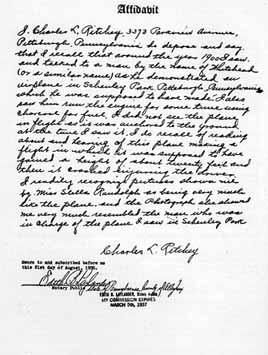 Affidavit
I, Charles L. Ritchey, 3373 Avenue,
Pittsburgh, Pennsylvania do depose and say
that I recall that around the year 1900 I saw,
and talked to a man by the name of Whitehead
(or a similar name) as he demonstrated an
airplane in Schenley Park, Pittsburgh, Pennsylvania
which he was supposed to have made. I also
saw him run the engine for some time using
charcoal for fuel. I did not see the plane
in flight as it was anchored to the ground
at the time I saw it. I do recall of reading
about and hearing of this plane making a
flight in which he was supposed to have
gained a height of about twenty feet and
then it crashed injuring the
I readily recognize pictures shown me
by Miss Stella Randolph as being very much
like the plane, and the photograph she showed
me very much resembled the man who was
in charge of the plane I saw in Schenley Park
Charles L. Ritchey
Sworn to and subscribed before me
this 31st day of August, 1936.
Notary Public
MY COMMISSION EXPIRES
MARCH 5th, 1937